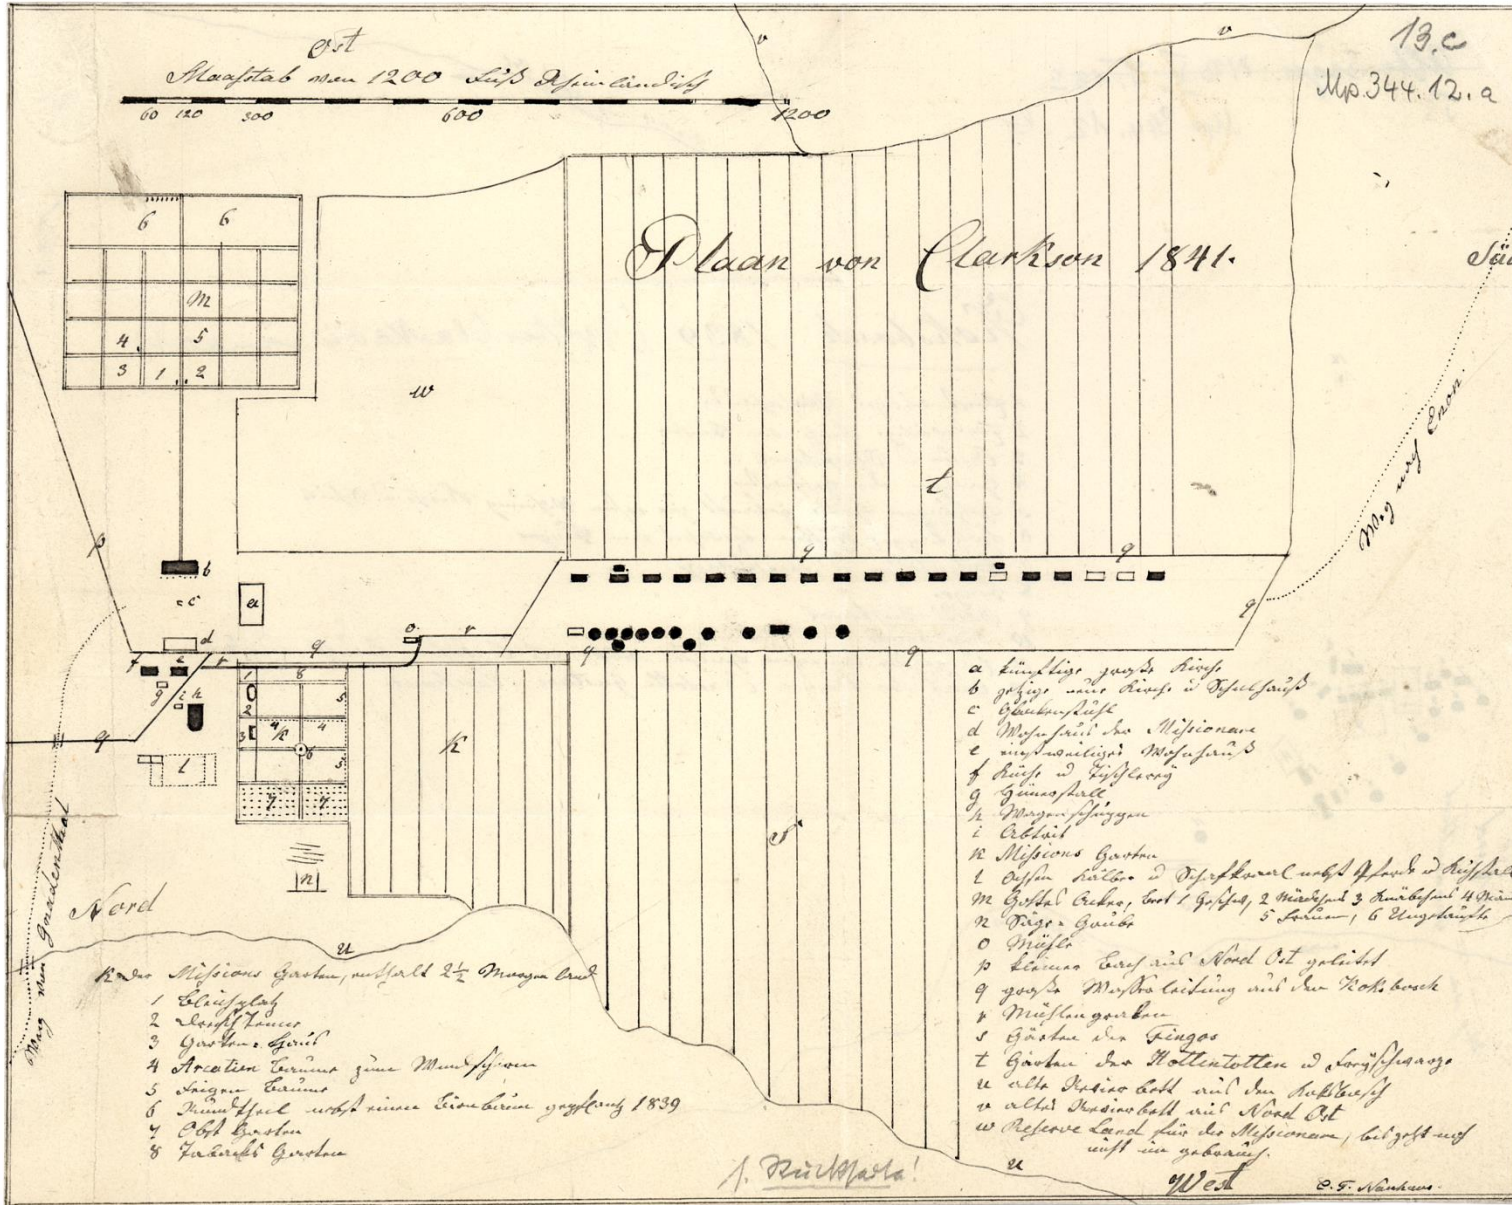 13.c
Mp. 344. 12. a
Ost
Maaßtab von 1200 Fuß Rheinländisch
60 120 300 600 1200
Plaan von Clarkson 1841.
Weg nach Enon.
Weg von Gnadenthal
Nord
a künftige große Kirche
b jetzige neue Kirche u Schulhauß
c Glockenstuhl
d Wohnhaus der Missionare
e einstweiliges Wohnhauß
f Küche u Tischlerey
g Hünerstall
h Wagenschuppen
i Abtrit
k Missions Garten
l Ochsen Kälber u Schafkraal nebst Pferde u Kuhstall
m Gottes Acker, 1 2 Mädchens 3 Knäbchens 4
5 Frauen, 6 Ungetaufte
n Säge-Grube
o Mühle
p kleiner Bach aus Nord Ost geleitet
q große Wasserleitung aus den Koksbosch
r Mühlengraben
s Gärten der Fingos
t Gärten der Hottentotten u Freyschwarze
u alte Revier bett aus den Koksbosch
v altes Revierbett aus Nord Ost
w Reserve Land für die Missionare, bis jetzt noch
nicht im gebrauch.
k der Missions Garten, enthält 2½ Morgen land
1 Bleichplatz
2 Dresch Tenne
3 Garten-Haus
4 Arcatien Bäume zum Windschirm
5 Feigen Bäume
6 Rundtheil nebst einem Birnbaum gepflanzt 1839
7 Obst Garten
8 Tabacks Garten
s. Rückseite!
West